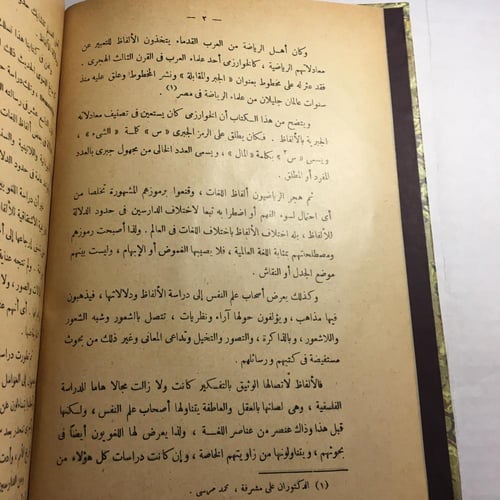 — ٢ —
وكان أهل الرياضة من العرب القدماء يتخذون الألفاظ للتعبير عن
معادلاتهم الرياضية ، كالخوارزمى أحد علماء العرب فى القرن الثالث الهجرى .
فقد عثر له على مخطوط بعنوان « الجبر والمقابلة » ونشر المخطوط وعلق عليه منذ
سنوات عالمان جليلان من علماء الرياضة فى مصر (١)
ويتضح من هذا الكتاب أن الخوارزمى كان يستعين فى تصنيف معادلاته
الجبرية بالألفاظ . فكان يطلق على الرمز الجبرى « س » كلمة « الشىء » ،
ويسمى « س٢ » بكلمة « المال » ، ويسمى العدد الخالى من مجهول جبرى بالعدد
المفرد أو المطلق .
ثم هجر الرياضيون ألفاظ اللغات ، وقنعوا برموزهم المشهورة تخلصا من
أى احتمال لسوء الفهم أو اضطرابه تبعا لاختلاف الدارسين فى حدود الدلالة
للألفاظ ، بله اختلاف الألفاظ باختلاف اللغات فى العالم . ولذا أصبحت رموزهم
ومصطلحاتهم بمثابة اللغة العالمية ، فلا يصيبها الغموض أو الإبهام ، وليست بينهم
موضع الجدل أو النقاش .
وكذلك يعرض أصحاب علم النفس إلى دراسة الألفاظ ودلالاتها ، فيذهبون
فيها مذاهب ، ويؤلفون حولها آراء ونظريات ، تتصل بالشعور وشبه الشعور
واللاشعور ، وبالذاكرة ، والتصور والتخيل وتداعى المعانى وغير ذلك من بحوث
مستفيضة فى كتبهم ورسائلهم .
فالألفاظ لاتصالها الوثيق بالتفكير كانت ولا زالت مجالا هاما للدراسة
الفلسفية ، وهى لصلتها بالعقل والعاطفة يتناولها أصحاب علم النفس ، ولكنها
قبل هذا وذاك عنصر من عناصر اللغـة ، ولذا يعرض لها اللغويون أيضاً فى
بحوثهم ، ويتناولونها من زاويتهم الخاصة ، وإن كانت دراسات كل هؤلاء من
(١) الدكتوران على مشرفة ، محمد مرسى .